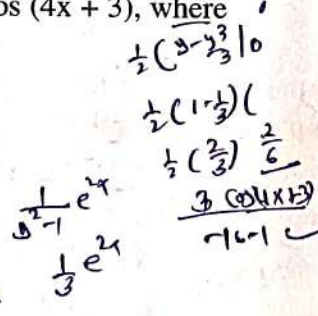 os (4x + 3), where
1/2 (y - y³/3 |0
1/2 (1 - 1/3) (
1/2 (2/3) 2/6
1/(D²-1) e^2x
3 cos(4x+3)/(-16-1)
1/3 e^2x